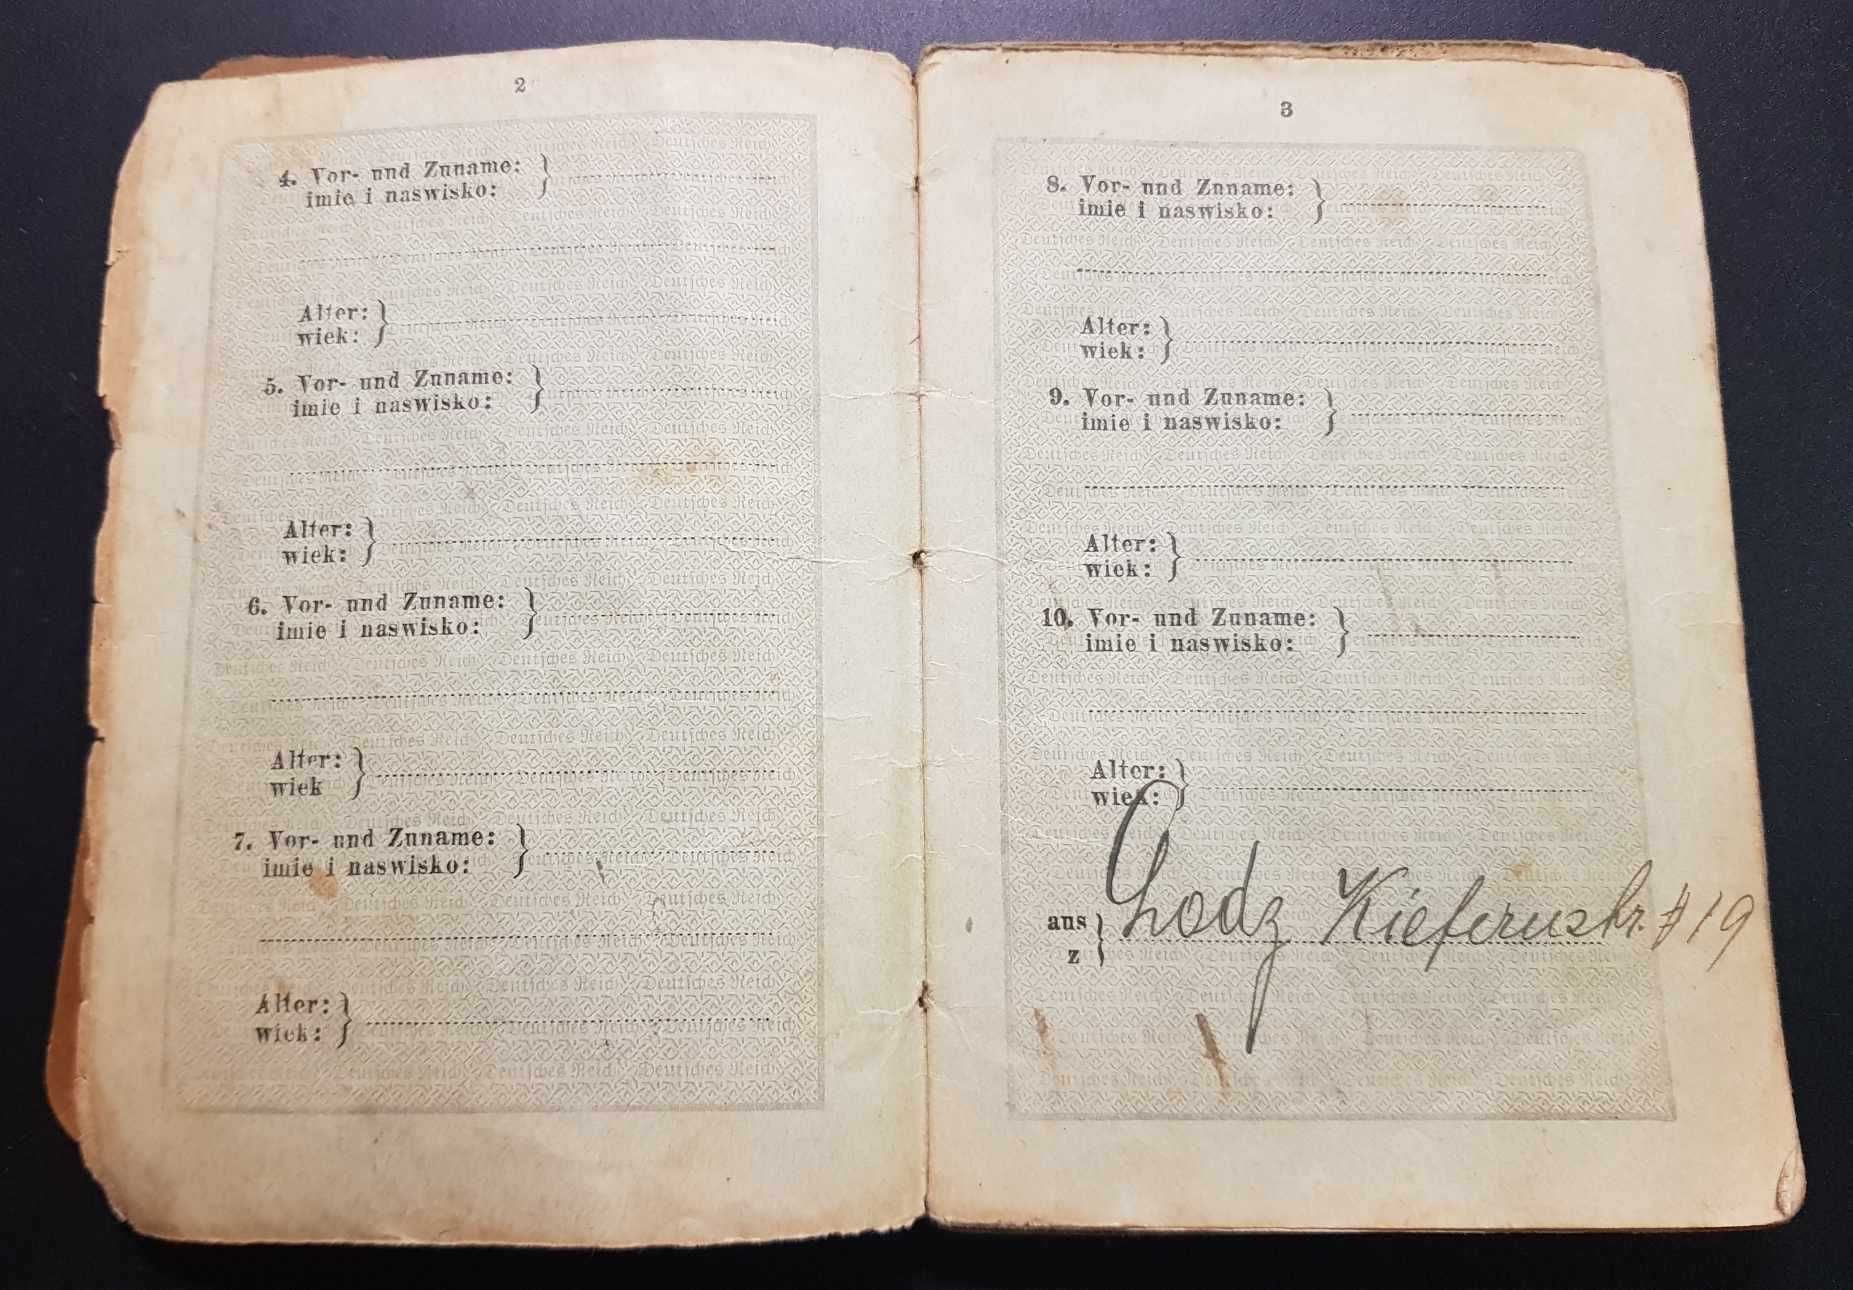 2
4. Vor- und Zuname:
imie i naswisko:
Alter:
wiek:
5. Vor- und Zuname:
imie i naswisko:
Alter:
wiek:
6. Vor- und Zuname:
imie i naswisko:
Alter:
wiek
7. Vor- und Zuname:
imie i naswisko:
Alter:
wiek:
3
8. Vor- und Zuname:
imie i naswisko:
Alter:
wiek:
9. Vor- und Zuname:
imie i naswisko:
Alter:
wiek:
10. Vor- und Zuname:
imie i naswisko:
Alter:
wiek:
aus Lodz Kiefernstr. # 19
z
Deutsches Reich